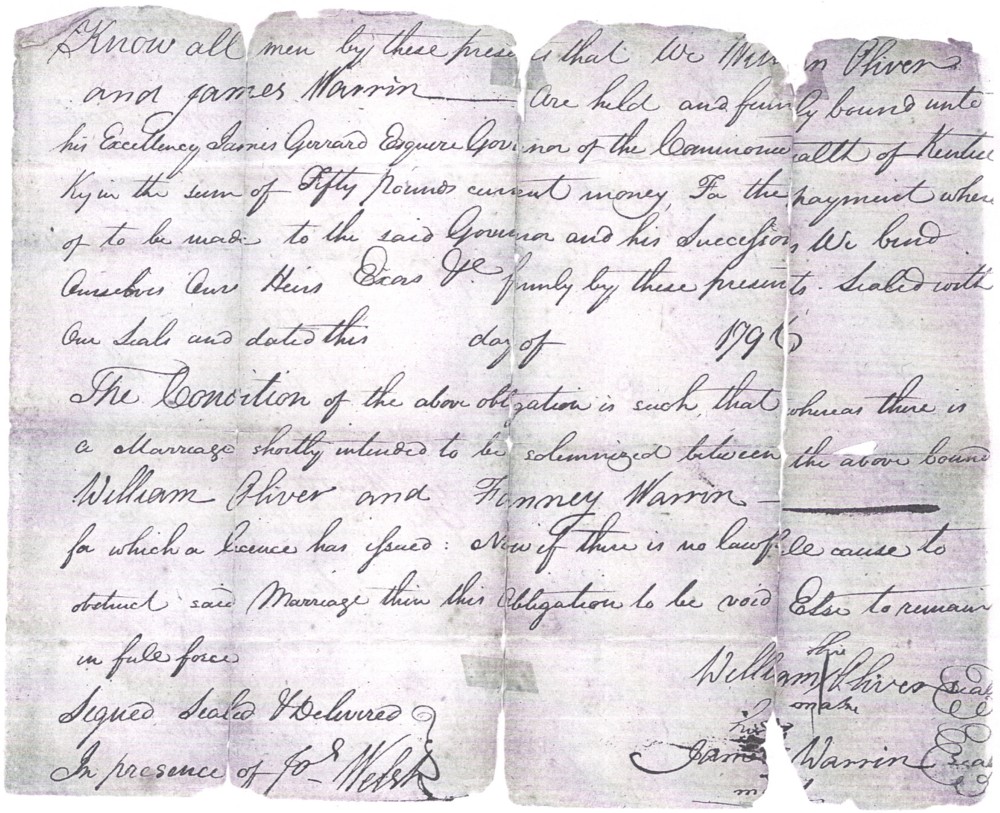 Know all men by these prese s that We Oliver
and James Warrin Are held and firmly bound unto
his Excellency James Gerrard Esquire Governor of the Commonwealth of Kentuc
Ky in the sum of Fifty Pounds current money, To the payment where
of to be made to the said Governor and his Successors We bind
Ourselves Our Heirs Exors &c. firmly by these presents. Sealed with
Our Seals and dated this day of 179
The Condition of the above obligation is such, that whereas there is
a Marriage shortly intended to be solemnized between the above bound
William Oliver and Fanney Warrin
for which a licence has issued: Now if there is no lawfull cause to
obstruct said Marriage then this Obligation to be void Else to remain
in full force
his
William Oliver Seal
mark
Signed Sealed & Delivered
his
James Warrin Seal
In presence of Jos Welsh
m